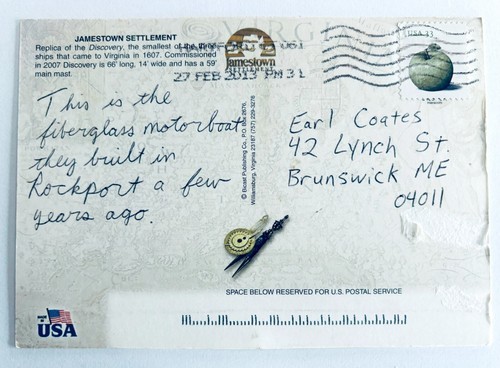 JAMESTOWN SETTLEMENT
Replica of the Discovery, the smallest of the three
ships that came to Virginia in 1607. Commissioned
in 2007 Discovery is 66' long, 14' wide and has a 59'
main mast.
061
Jamestown
SETTLEMENT
27 FEB 2013 PM 3 L
USA
This is the
fiberglass motorboat
they built in
Rockport a few
years ago.
Earl Coates
42 Lynch St.
Brunswick ME
04011
Williamsburg, Virginia 23187 (757) 229-3276
SPACE BELOW RESERVED FOR U.S. POSTAL SERVICE
USA